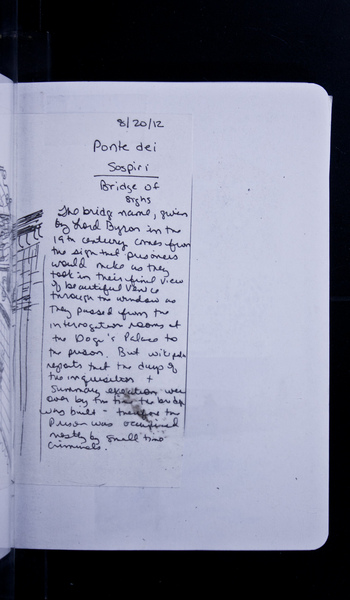 8/20/12
Ponte dei
Sospiri
Bridge of
sighs
The bridge name, given
by Lord Byron in the
19th century comes from
the sigh that prisoners
would make as they
took in their final view
of beautiful Venice
through the window as
they passed from the
interrogation rooms at
the Doge's Palace to
the prison. But wikipedia
reports that the days of
the inquisition +
summary execution were
over by the time the bridge
was built - therefore the
prison was occupied
mostly by small time
criminals.